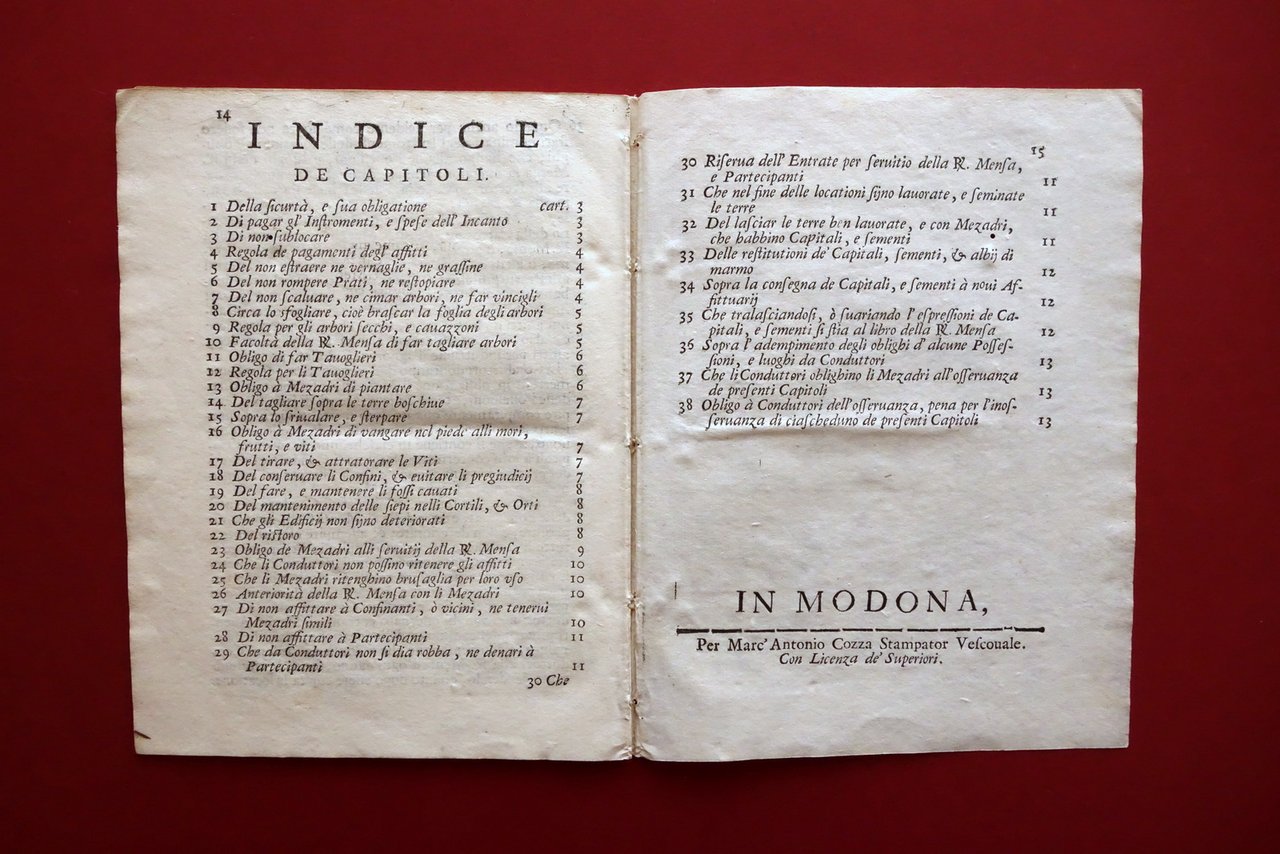 14
INDICE
DE CAPITOLI.
1 Della ſicurtà, e ſua obligatione cart. 3
2 Di pagar gl' Inſtromenti, e ſpeſe dell' Incanto 3
3 Di non ſublocare 3
4 Regola de pagamenti degl' affitti 4
5 Del non eſtraere ne vernaglie, ne graſſine 4
6 Del non rompere Prati, ne reſtopiare 4
7 Del non ſcaluare, ne cimar arbori, ne far vincigli 4
8 Circa lo sfogliare, cioè braſcar la foglia degli arbori 5
9 Regola per gli arbori ſecchi, e cauazzoni 5
10 Facoltà della R. Menſa di far tagliare arbori 5
11 Obligo di far Tauoglieri 6
12 Regola per li Tauoglieri 6
13 Obligo à Mezadri di piantare 6
14 Del tagliare ſopra le terre boſchiue 7
15 Sopra lo ſriualare, e ſterpare 7
16 Obligo à Mezadri di vangare nel piede alli mori,
frutti, e viti 7
17 Del tirare, & attratorare le Viti 7
18 Del conſeruare li Confini, & euitare li pregiudicij 7
19 Del fare, e mantenere li foſſi cauati 8
20 Del mantenimento delle ſiepi nelli Cortili, & Orti 8
21 Che gli Edificij non ſijno deteriorati 8
22 Del riſtoro 8
23 Obligo de Mezadri alli ſeruitij della R. Menſa 9
24 Che li Conduttori non poſſino ritenere gli affitti 10
25 Che li Mezadri ritenghino bruſaglia per loro vſo 10
26 Anteriorità della R. Menſa con li Mezadri 10
27 Di non affittare à Confinanti, ò vicini, ne tenerui
Mezadri ſimili 10
28 Di non affittare à Partecipanti 11
29 Che da Conduttori non ſi dia robba, ne denari à
Partecipanti 11
30 Che
15
30 Riſerua dell' Entrate per ſeruitio della R. Menſa,
e Partecipanti 11
31 Che nel fine delle locationi ſijno lauorate, e ſeminate
le terre 11
32 Del laſciar le terre ben lauorate, e con Mezadri,
che habbino Capitali, e ſementi 11
33 Delle reſtitutioni de' Capitali, ſementi, & albij di
marmo 12
34 Sopra la conſegna de Capitali, e ſementi à noui Af-
fittuarij 12
35 Che tralaſciandoſi, ò ſuariando l' eſpreſſioni de Ca-
pitali, e ſementi ſi ſtia al libro della R. Menſa 12
36 Sopra l' adempimento degli oblighi d' alcune Poſſeſ-
ſioni, e luoghi da Conduttori 13
37 Che li Conduttori oblighino li Mezadri all' oſſeruanza
de preſenti Capitoli 13
38 Obligo à Conduttori dell' oſſeruanza, pena per l' inoſ-
ſeruanza di ciaſcheduno de preſenti Capitoli 13
IN MODONA,
Per Marc' Antonio Cozza Stampator Veſcouale.
Con Licenza de' Superiori.